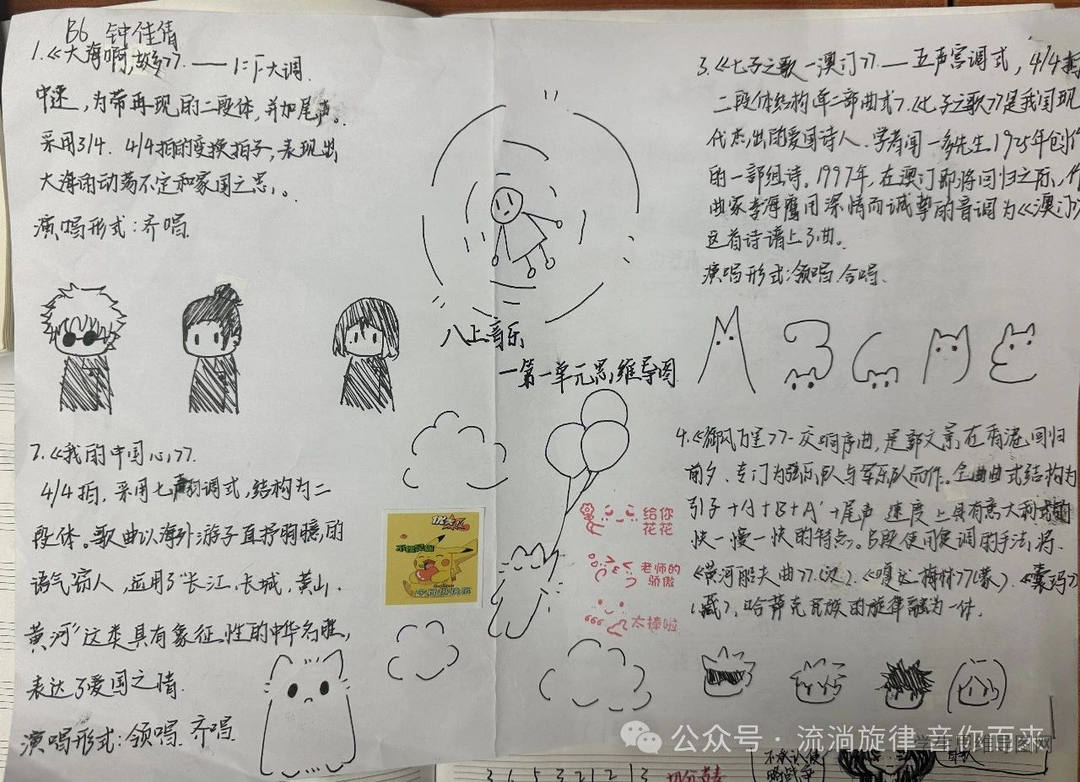 B6 钟佳倩
1.《大海啊,故乡》.——1=F大调.
中速,为带再现的二段体,并加尾声。
采用3/4、4/4拍的变换拍子,表现出
大海的动荡不定和家国之思。
演唱形式:齐唱
2.《我的中国心》.
4/4拍,采用七声调式,结构为二
段体。歌曲以海外游子直抒胸臆的
语气,运用了“长江、长城,黄山、
黄河”这类具有象征性的中华名胜,
表达了爱国之情.
演唱形式:领唱.齐唱
八上音乐
一第一单元思维导图
给你
花花
老师的
骄傲
太棒啦
3.《七子之歌—澳门》.——五声宫调式,4/4拍
二段体结构(单二部曲式).《七子之歌》是我国现
代杰出的爱国诗人、学者闻一多先生1925年创作
的一部组诗。1997年,在澳门即将回归之际,作
曲家李海鹰用深情而诚挚的音调为《澳门》
这首诗谱上了曲。
演唱形式:领唱.合唱.
4.《御风万里》-交响序曲,是部文景在香港回归
前夕、专门为管乐队与军乐队而作。全曲曲式结构为
引子+A+B+A'+尾声 速度上具有意大利
快—慢—快的特点,B段使用复调的手法,将
《黄河船夫曲》(汉)、《嘎达梅林》(蒙)、《囊玛》
(藏),哈萨克民族的旋律融为一体.
公众号·流淌旋律 音你而来
学生思维导图网
不承认使
3 6 5 3 2 1 2 1 3